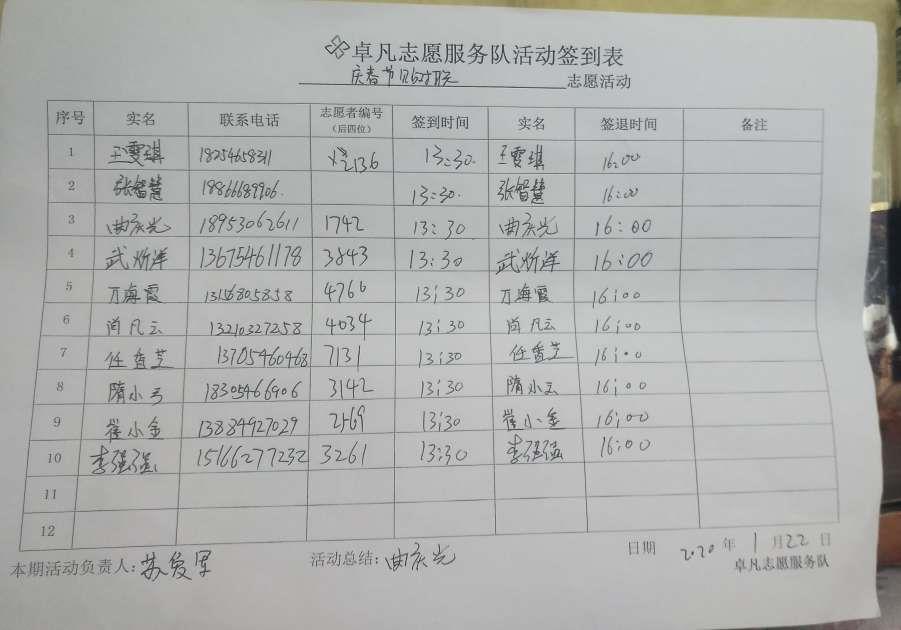 卓凡志愿服务队活动签到表
庆春节 志愿活动
序号 实名 联系电话 志愿者编号（后四位） 签到时间 实名 签退时间 备注
1 王雯琪 18254658311 2136 13:30 王雯琪 16:00
2 张智慧 19866689906 13:30 张智慧 16:00
3 曲庆光 18953062611 1742 13:30 曲庆光 16:00
4 武炘洋 13675461178 3843 13:30 武炘洋 16:00
5 万海霞 13156805858 4766 13:30 万海霞 16:00
6 尚凡云 13210327258 4034 13:30 尚凡云 16:00
7 任香芝 13705460468 7131 13:30 任香芝 16:00
8 隋小云 18305466906 3142 13:30 隋小云 16:00
9 崔小金 13884927029 2569 13:30 崔小金 16:00
10 李强强 15166277232 3261 13:30 李强强 16:00
11
12
本期活动负责人: 苏爱军 活动总结: 曲庆光 日期 2020 年 1 月 22 日
卓凡志愿服务队